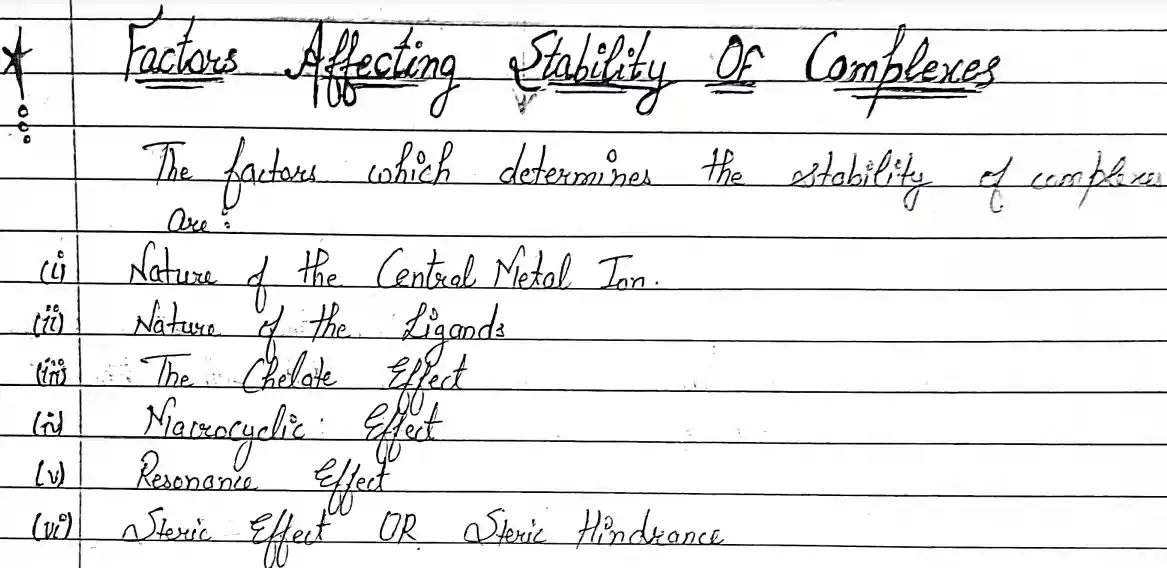 Factors Affecting Stability Of Complexes
The factors which determines the stability of complexes
are:
(i) Nature of the Central Metal Ion.
(ii) Nature of the Ligands
(iii) The Chelate Effect
(iv) Macrocyclic Effect
(v) Resonance Effect
(vi) Steric Effect OR Steric Hindrance